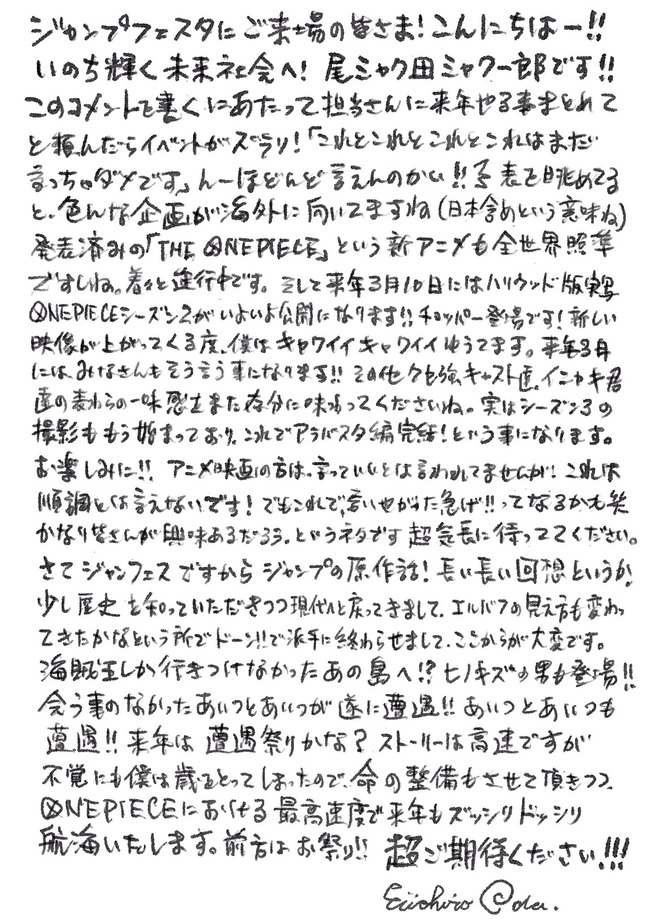 ジャンプフェスタにご来場の皆さま!こんにちはー!!
いのち輝く未来社会へ! 尾ミャク田ミャクー郎です!!
このコメントを書くにあたって担当さんに来年やる事まとめて
と頼んだらイベントがズラリ!「これとこれとこれとこれはまだ
言っちゃダメです」んーほとんど言えんのかい!!予表を眺めてる
と、色んな企画が海外に向いてますね(日本含めという意味ね)
発表済みの「THE ONE PIECE」という新アニメも全世界照準
ですしね。着々と進行中です。そして来年3月10日にはハリウッド版実写
ONE PIECEシーズン2がいよいよ公開になります!!チョッパー登場です!新しい
映像が上がってくる度、僕はキャワイイキャワイイゆうてます。来年3月
には、みなさんもそう言う事になります!!その他クセ強キャスト達、イニャキ君
達の麦わらの一味愛もまた存分に味わってくださいね。実はシーズン3の
撮影ももう始まっており、これでアラバスタ編完結!という事になります。
お楽しみに!! アニメ映画の方は、言っていいとは言われてませんが、これは
順調とは言えないです!でもこれで、言いやがった急げ!!ってなるかも笑
かなり皆さんが興味あるだろう、というネタです 超気長に待っててください。
さてジャンフェスですからジャンプの原作話!長い長い回想というか、
少し歴史を知っていただきつつ現代へと戻ってきまして、エルバフの見え方も変わっ
てきたかなという所でドーン!!で派手に終わらせまして、ここからが大変です。
海賊王しか行きつけなかったあの島へ!?ヒノキズの男も登場!!
会う事のなかったあいつとあいつが遂に遭遇!!あいつとあいつも
遭遇!!来年は遭遇祭りかな?ストーリーは高速ですが
不覚にも僕は歳をとってしまったので、命の整備もさせて頂きつつ、
ONE PIECEにおける最高速度で来年もズッシリドッシリ
航海いたします。前方はお祭り!! 超ご期待ください!!!
Eiichiro Oda.